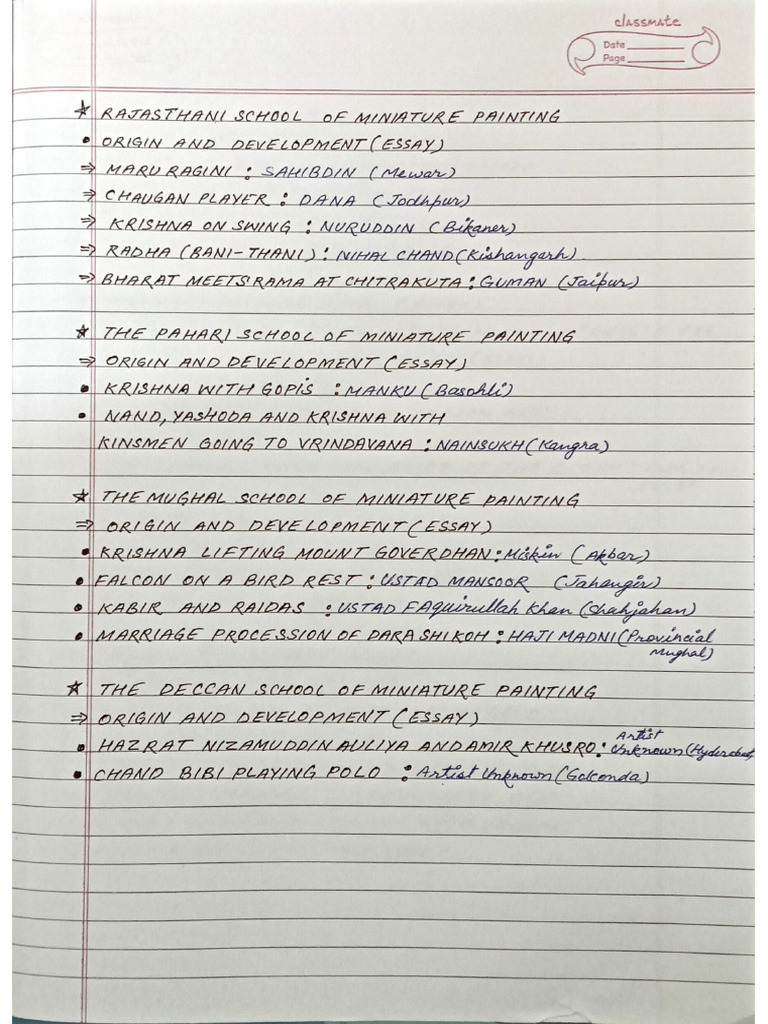 classmate
Date
Page
★ RAJASTHANI SCHOOL OF MINIATURE PAINTING
• ORIGIN AND DEVELOPMENT (ESSAY)
⇒ MARU RAGINI : SAHIBDIN (Mewar)
⇒ CHAUGAN PLAYER : DANA (Jodhpur)
⇒ KRISHNA ON SWING : NURUDDIN (Bikaner)
⇒ RADHA (BANI-THANI) : NIHAL CHAND (Kishangarh).
⇒ BHARAT MEETS RAMA AT CHITRAKUTA : GUMAN (Jaipur)
★ THE PAHARI SCHOOL OF MINIATURE PAINTING
⇒ ORIGIN AND DEVELOPMENT (ESSAY)
• KRISHNA WITH GOPIS : MANKU (Basohli)
• NAND, YASHODA AND KRISHNA WITH
KINSMEN GOING TO VRINDAVANA : NAINSUKH (Kangra)
★ THE MUGHAL SCHOOL OF MINIATURE PAINTING
⇒ ORIGIN AND DEVELOPMENT (ESSAY)
• KRISHNA LIFTING MOUNT GOVERDHAN : Miskin (Akbar)
• FALCON ON A BIRD REST : USTAD MANSOOR (Jahangir)
• KABIR AND RAIDAS : USTAD FAquirullah Khan (Shahjahan)
• MARRIAGE PROCESSION OF DARA SHIKOH : HAJI MADNI (Provincial
Mughal)
★ THE DECCAN SCHOOL OF MINIATURE PAINTING
⇒ ORIGIN AND DEVELOPMENT (ESSAY)
• HAZRAT NIZAMUDDIN AULIYA AND AMIR KHUSRO : Artist
Unknown (Hyderabad)
• CHAND BIBI PLAYING POLO : Artist Unknown (Golconda)